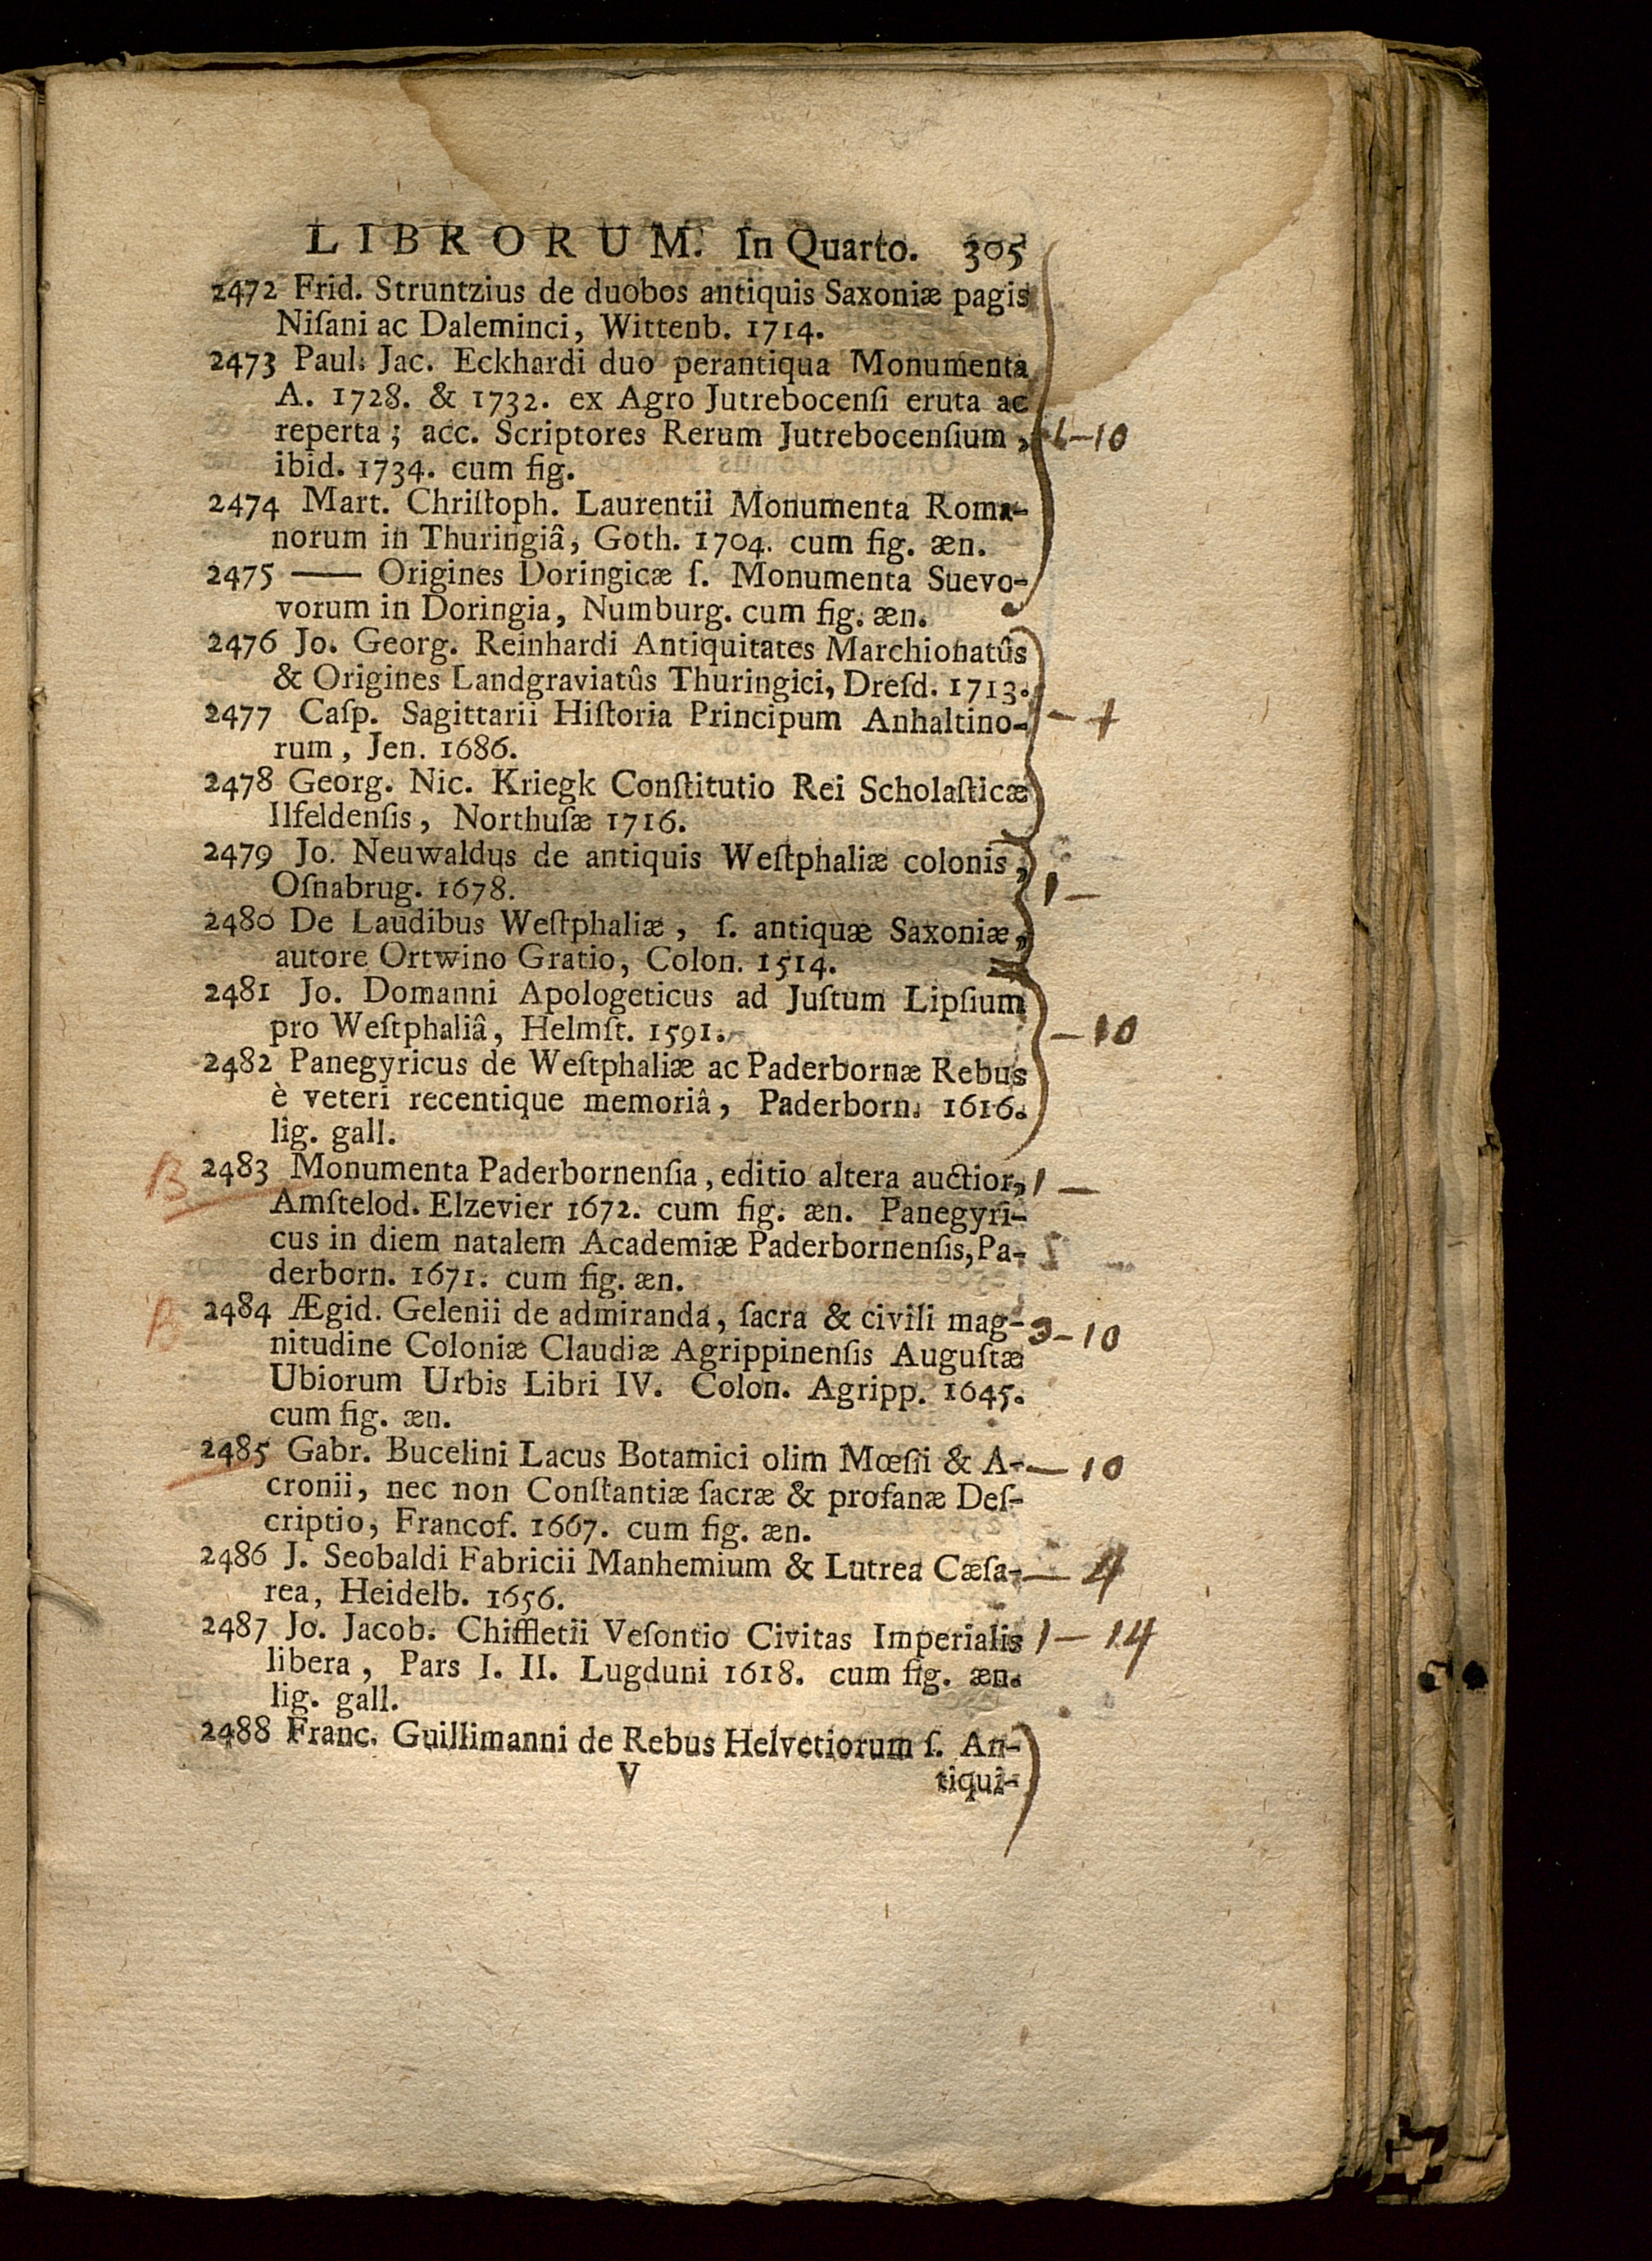 LIBRORUM. In Quarto. 305
2472 Frid. Struntzius de duobos antiquis Saxoniæ pagis
Niſani ac Daleminci, Wittenb. 1714.
2473 Paul. Jac. Eckhardi duo perantiqua Monumenta
A. 1728. & 1732. ex Agro Jutrebocenſi eruta ac
reperta; acc. Scriptores Rerum Jutrebocenſium,
ibid. 1734. cum fig.
2474 Mart. Chriſtoph. Laurentii Monumenta Roma-
norum in Thuringiâ, Goth. 1704. cum fig. æn.
2475 —— Origines Doringicæ ſ. Monumenta Suevo-
vorum in Doringia, Numburg. cum fig. æn.
2476 Jo. Georg. Reinhardi Antiquitates Marchionatûs
& Origines Landgraviatûs Thuringici, Dreſd. 1713.
2477 Caſp. Sagittarii Hiſtoria Principum Anhaltino-
rum, Jen. 1686.
2478 Georg. Nic. Kriegk Conſtitutio Rei Scholaſticæ
Ilfeldenſis, Northuſæ 1716.
2479 Jo. Neuwaldus de antiquis Weſtphaliæ colonis,
Oſnabrug. 1678. 1 —
2480 De Laudibus Weſtphaliæ, ſ. antiquæ Saxoniæ,
autore Ortwino Gratio, Colon. 1514.
2481 Jo. Domanni Apologeticus ad Juſtum Lipſium
pro Weſtphaliâ, Helmſt. 1591. — 10
2482 Panegyricus de Weſtphaliæ ac Paderbornæ Rebus
è veteri recentique memoriâ, Paderborn. 1616.
lig. gall.
B 2483 Monumenta Paderbornenſia, editio altera auctior, 1 —
Amſtelod. Elzevier 1672. cum fig. æn. Panegyri-
cus in diem natalem Academiæ Paderbornenſis, Pa-
derborn. 1671. cum fig. æn.
B 2484 Ægid. Gelenii de admiranda, ſacra & civili mag- 3 – 10
nitudine Coloniæ Claudiæ Agrippinenſis Auguſtæ
Ubiorum Urbis Libri IV. Colon. Agripp. 1645.
cum fig. æn.
2485 Gabr. Bucelini Lacus Botamici olim Mœſii & A- — 10
cronii, nec non Conſtantiæ ſacræ & profanæ Deſ-
criptio, Francof. 1667. cum fig. æn.
2486 J. Seobaldi Fabricii Manhemium & Lutrea Cæſa- — 4
rea, Heidelb. 1656.
2487 Jo. Jacob. Chiffletii Veſontio Civitas Imperialis 1 — 14
libera, Pars I. II. Lugduni 1618. cum fig. æn.
lig. gall.
2488 Franc. Guillimanni de Rebus Helvetiorum ſ. An-
V tiqui-